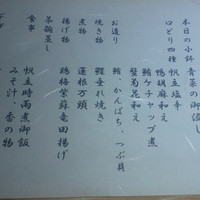 本日の小鉢
青菜のお浸し
口どり四種
帆立塩辛
鴨胡麻和え
鮪ケチャップ煮
蟹菊花和え
お造り
鮪、かんぱち、つぶ貝
焼き物
鰈垂れ焼き
煮物
蓮根万頭
揚げ物
鶏梅紫蘇竜田揚げ
茶碗蒸し
食事
帆立時雨煮御飯
みそ汁、香の物